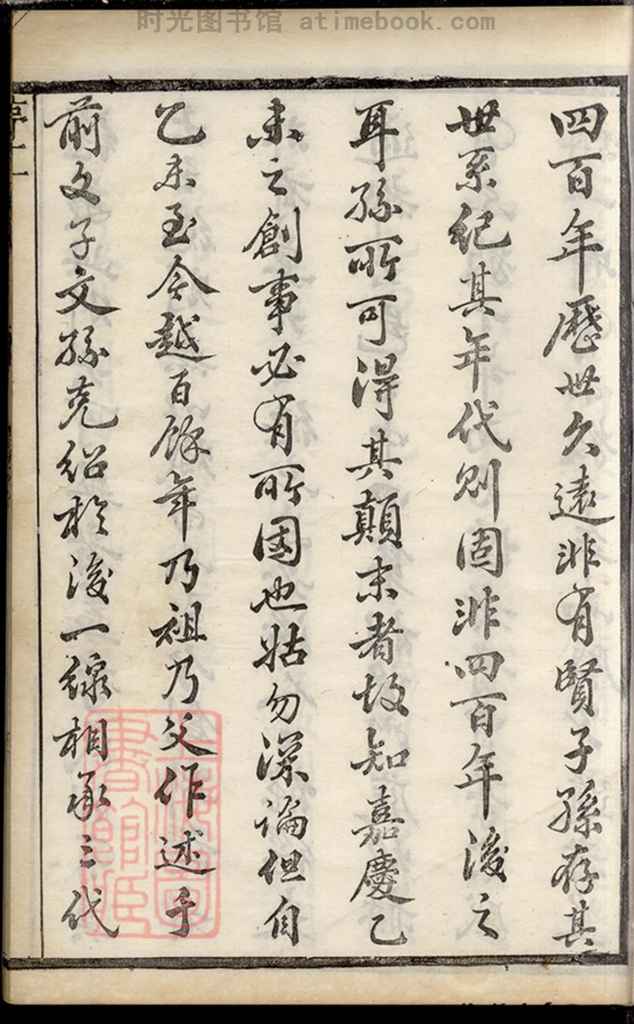 时光图书馆 atimebook.com
四百年歷世久遠非有賢子孫存其
世系紀其年代則固非四百年後之
耳孫所可得其顛末者故知嘉慶乙
未之創事必有所因也姑勿深論但自
乙未至今越百餘年乃祖乃父作述于
前文子文孫克紹於後一線相承三代